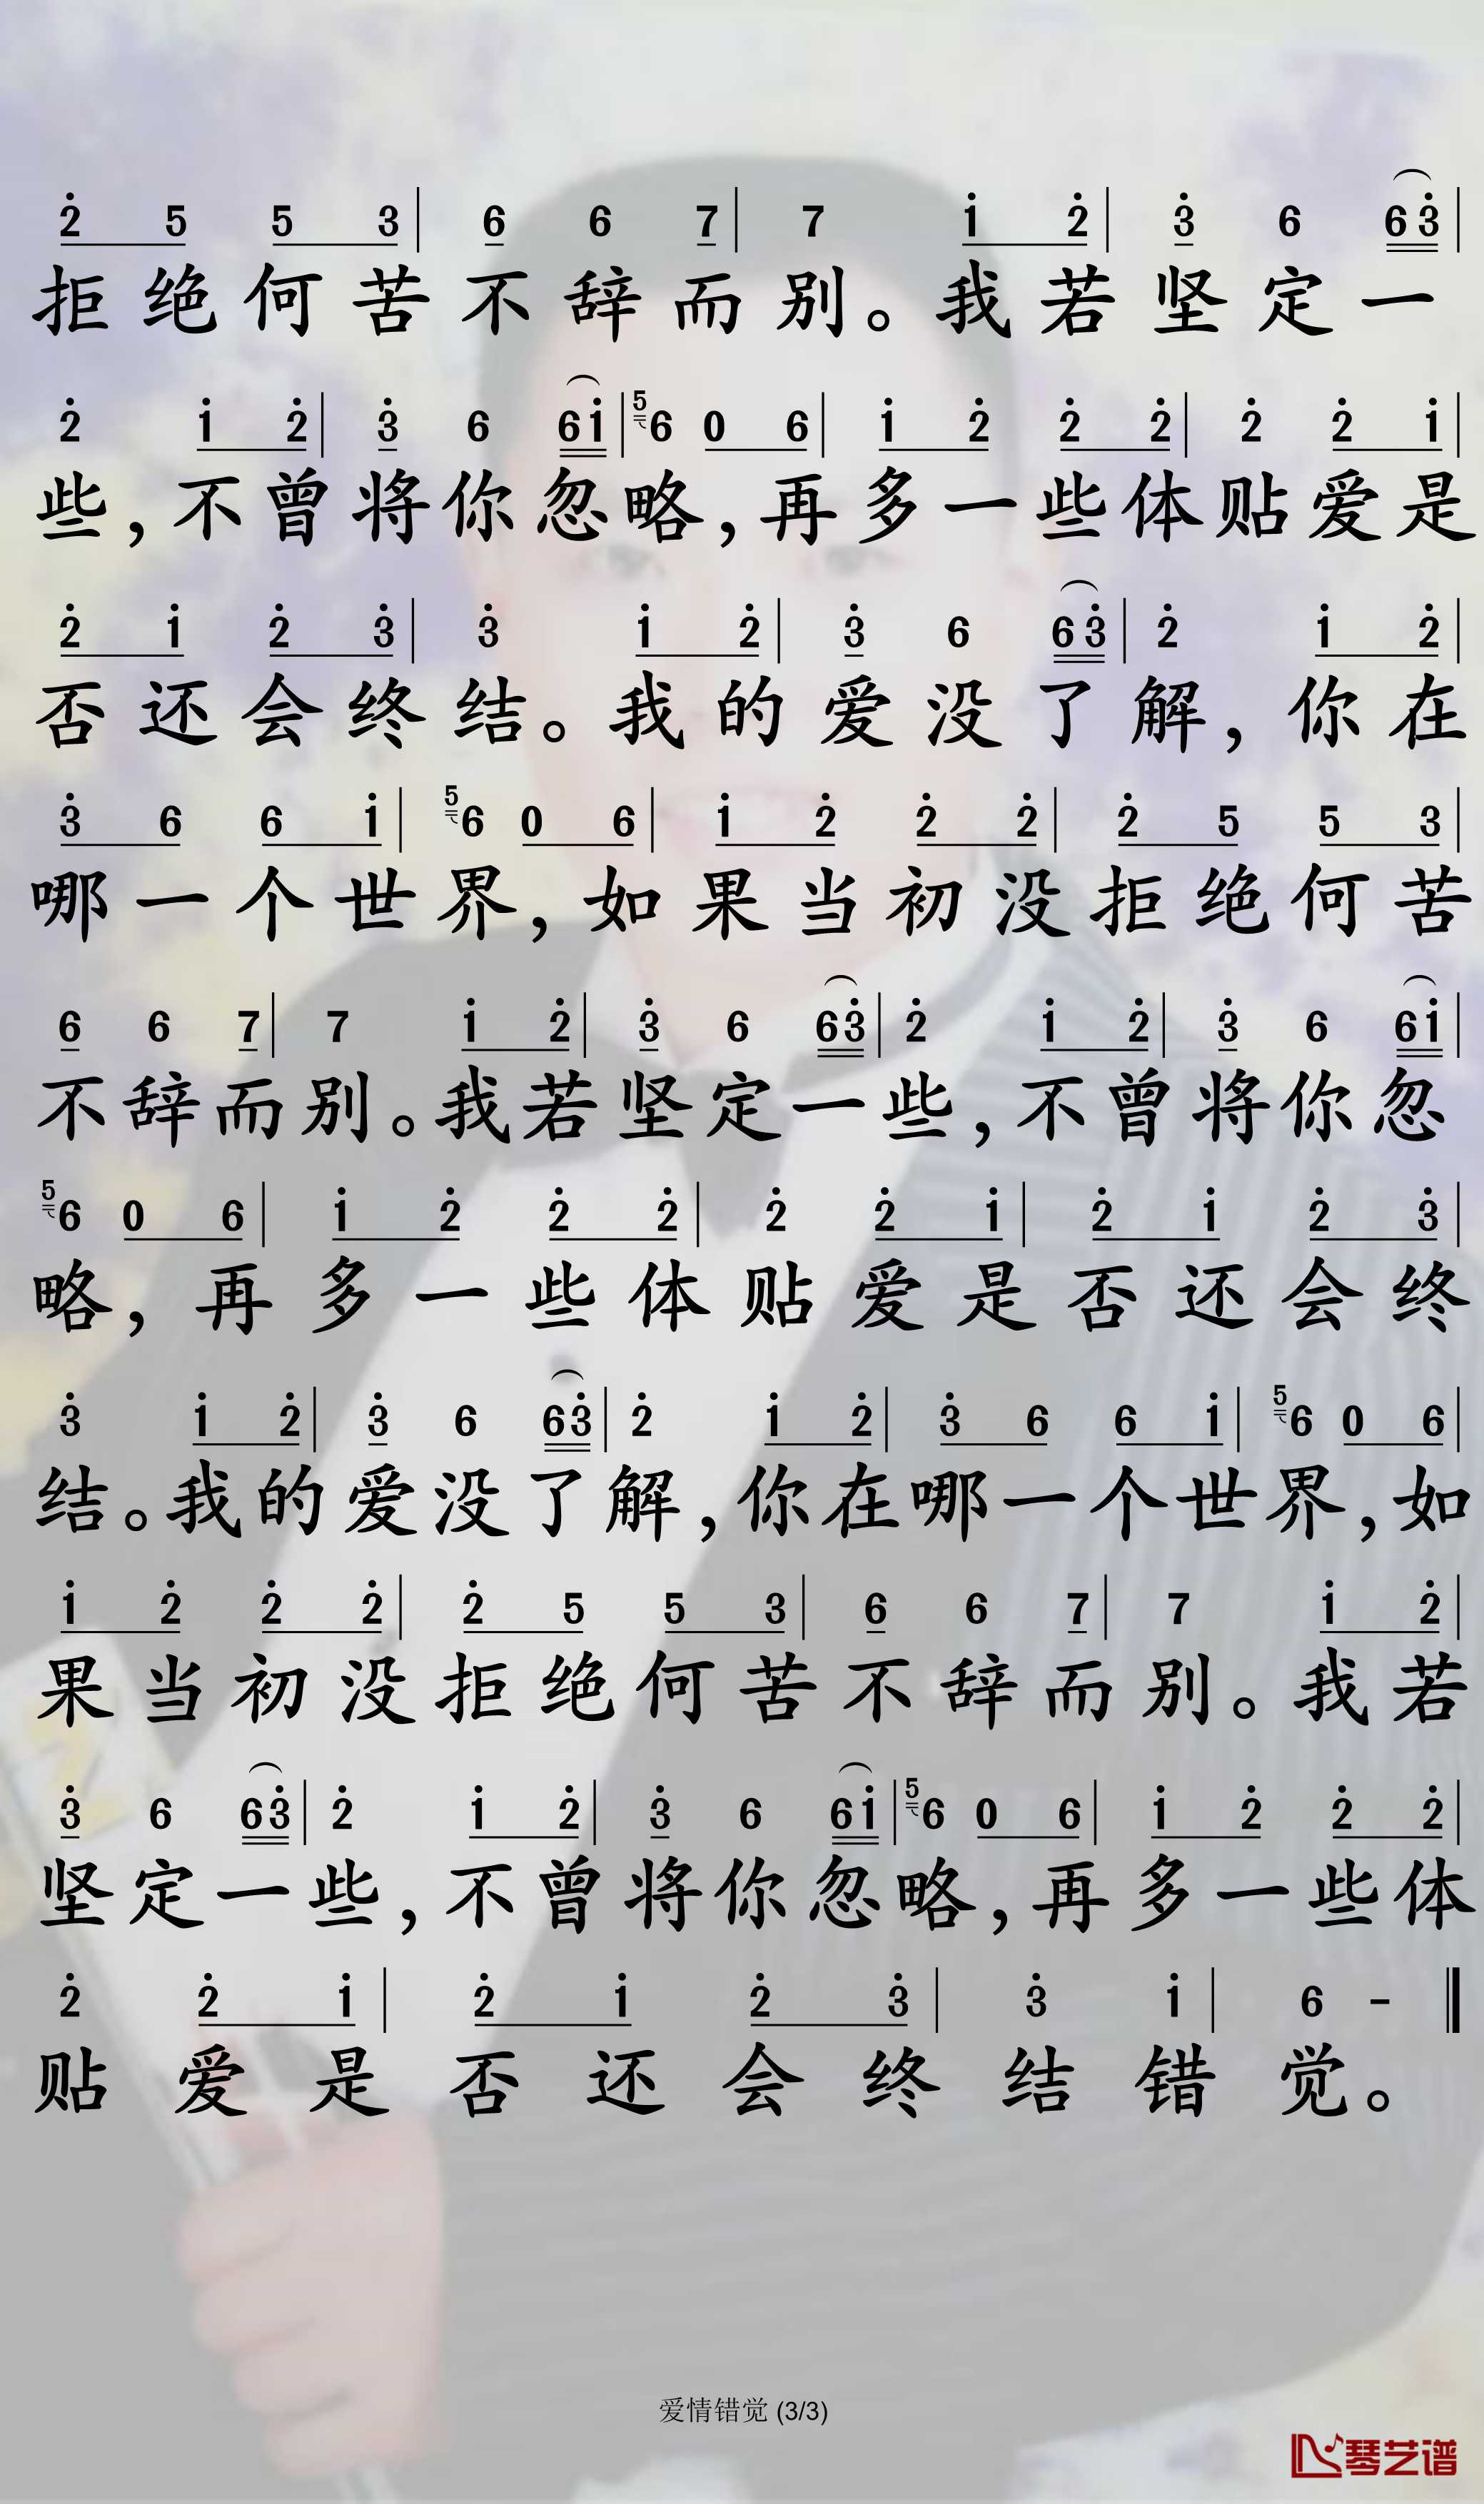 2 5 5 3 | 6 6 7 | 7 1 2 | 3 6 6 3 |
拒绝何苦不辞而别。我若坚定一
2 1 2 | 3 6 6 1 | 5 6 0 6 | 1 2 2 2 | 2 2 1 |
些,不曾将你忽略,再多一些体贴爱是
2 1 2 3 | 3 1 2 | 3 6 6 3 | 2 1 2 |
否还会终结。我的爱没了解,你在
3 6 6 1 | 5 6 0 6 | 1 2 2 2 | 2 5 5 3 |
哪一个世界,如果当初没拒绝何苦
6 6 7 | 7 1 2 | 3 6 6 3 | 2 1 2 | 3 6 6 1 |
不辞而别。我若坚定一些,不曾将你忽
5 6 0 6 | 1 2 2 2 | 2 2 1 | 2 1 2 3 |
略,再多一些体贴爱是否还会终
3 1 2 | 3 6 6 3 | 2 1 2 | 3 6 6 1 | 5 6 0 6 |
结。我的爱没了解,你在哪一个世界,如
1 2 2 2 | 2 5 5 3 | 6 6 7 | 7 1 2 |
果当初没拒绝何苦不辞而别。我若
3 6 6 3 | 2 1 2 | 3 6 6 1 | 5 6 0 6 | 1 2 2 2 |
坚定一些,不曾将你忽略,再多一些体
2 2 1 | 2 1 2 3 | 3 1 | 6 - ‖
贴爱是否还会终结错觉。
爱情错觉 (3/3)
琴艺谱